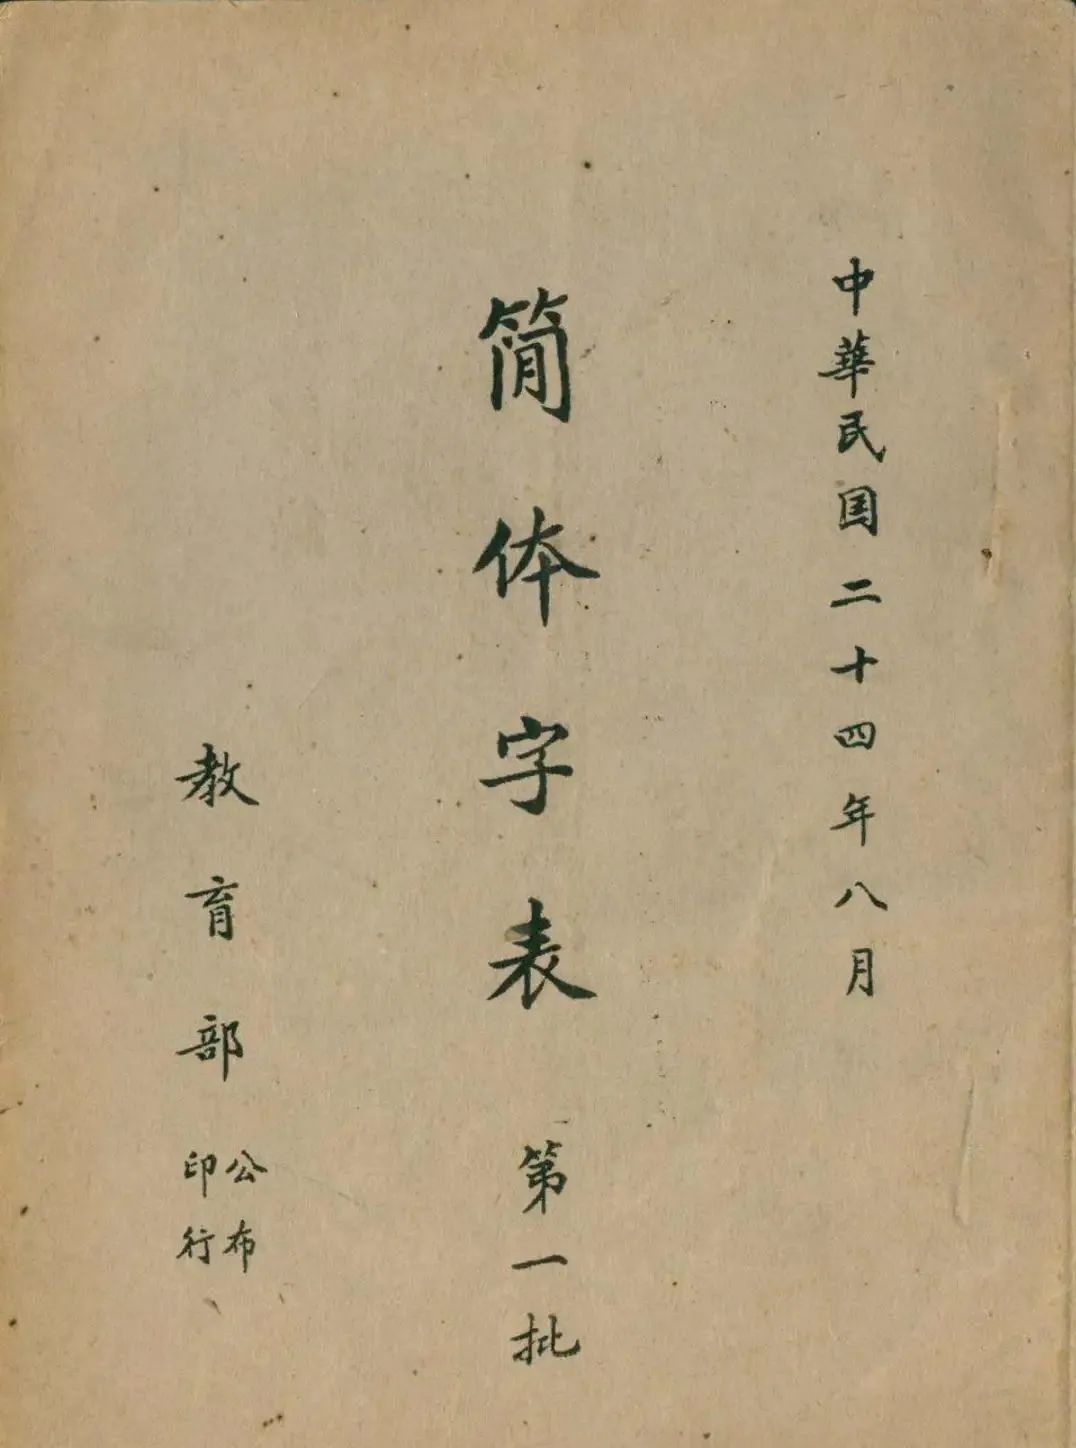 中華民囯二十四年八月
简体字表 第一批
教育部 公布
印行